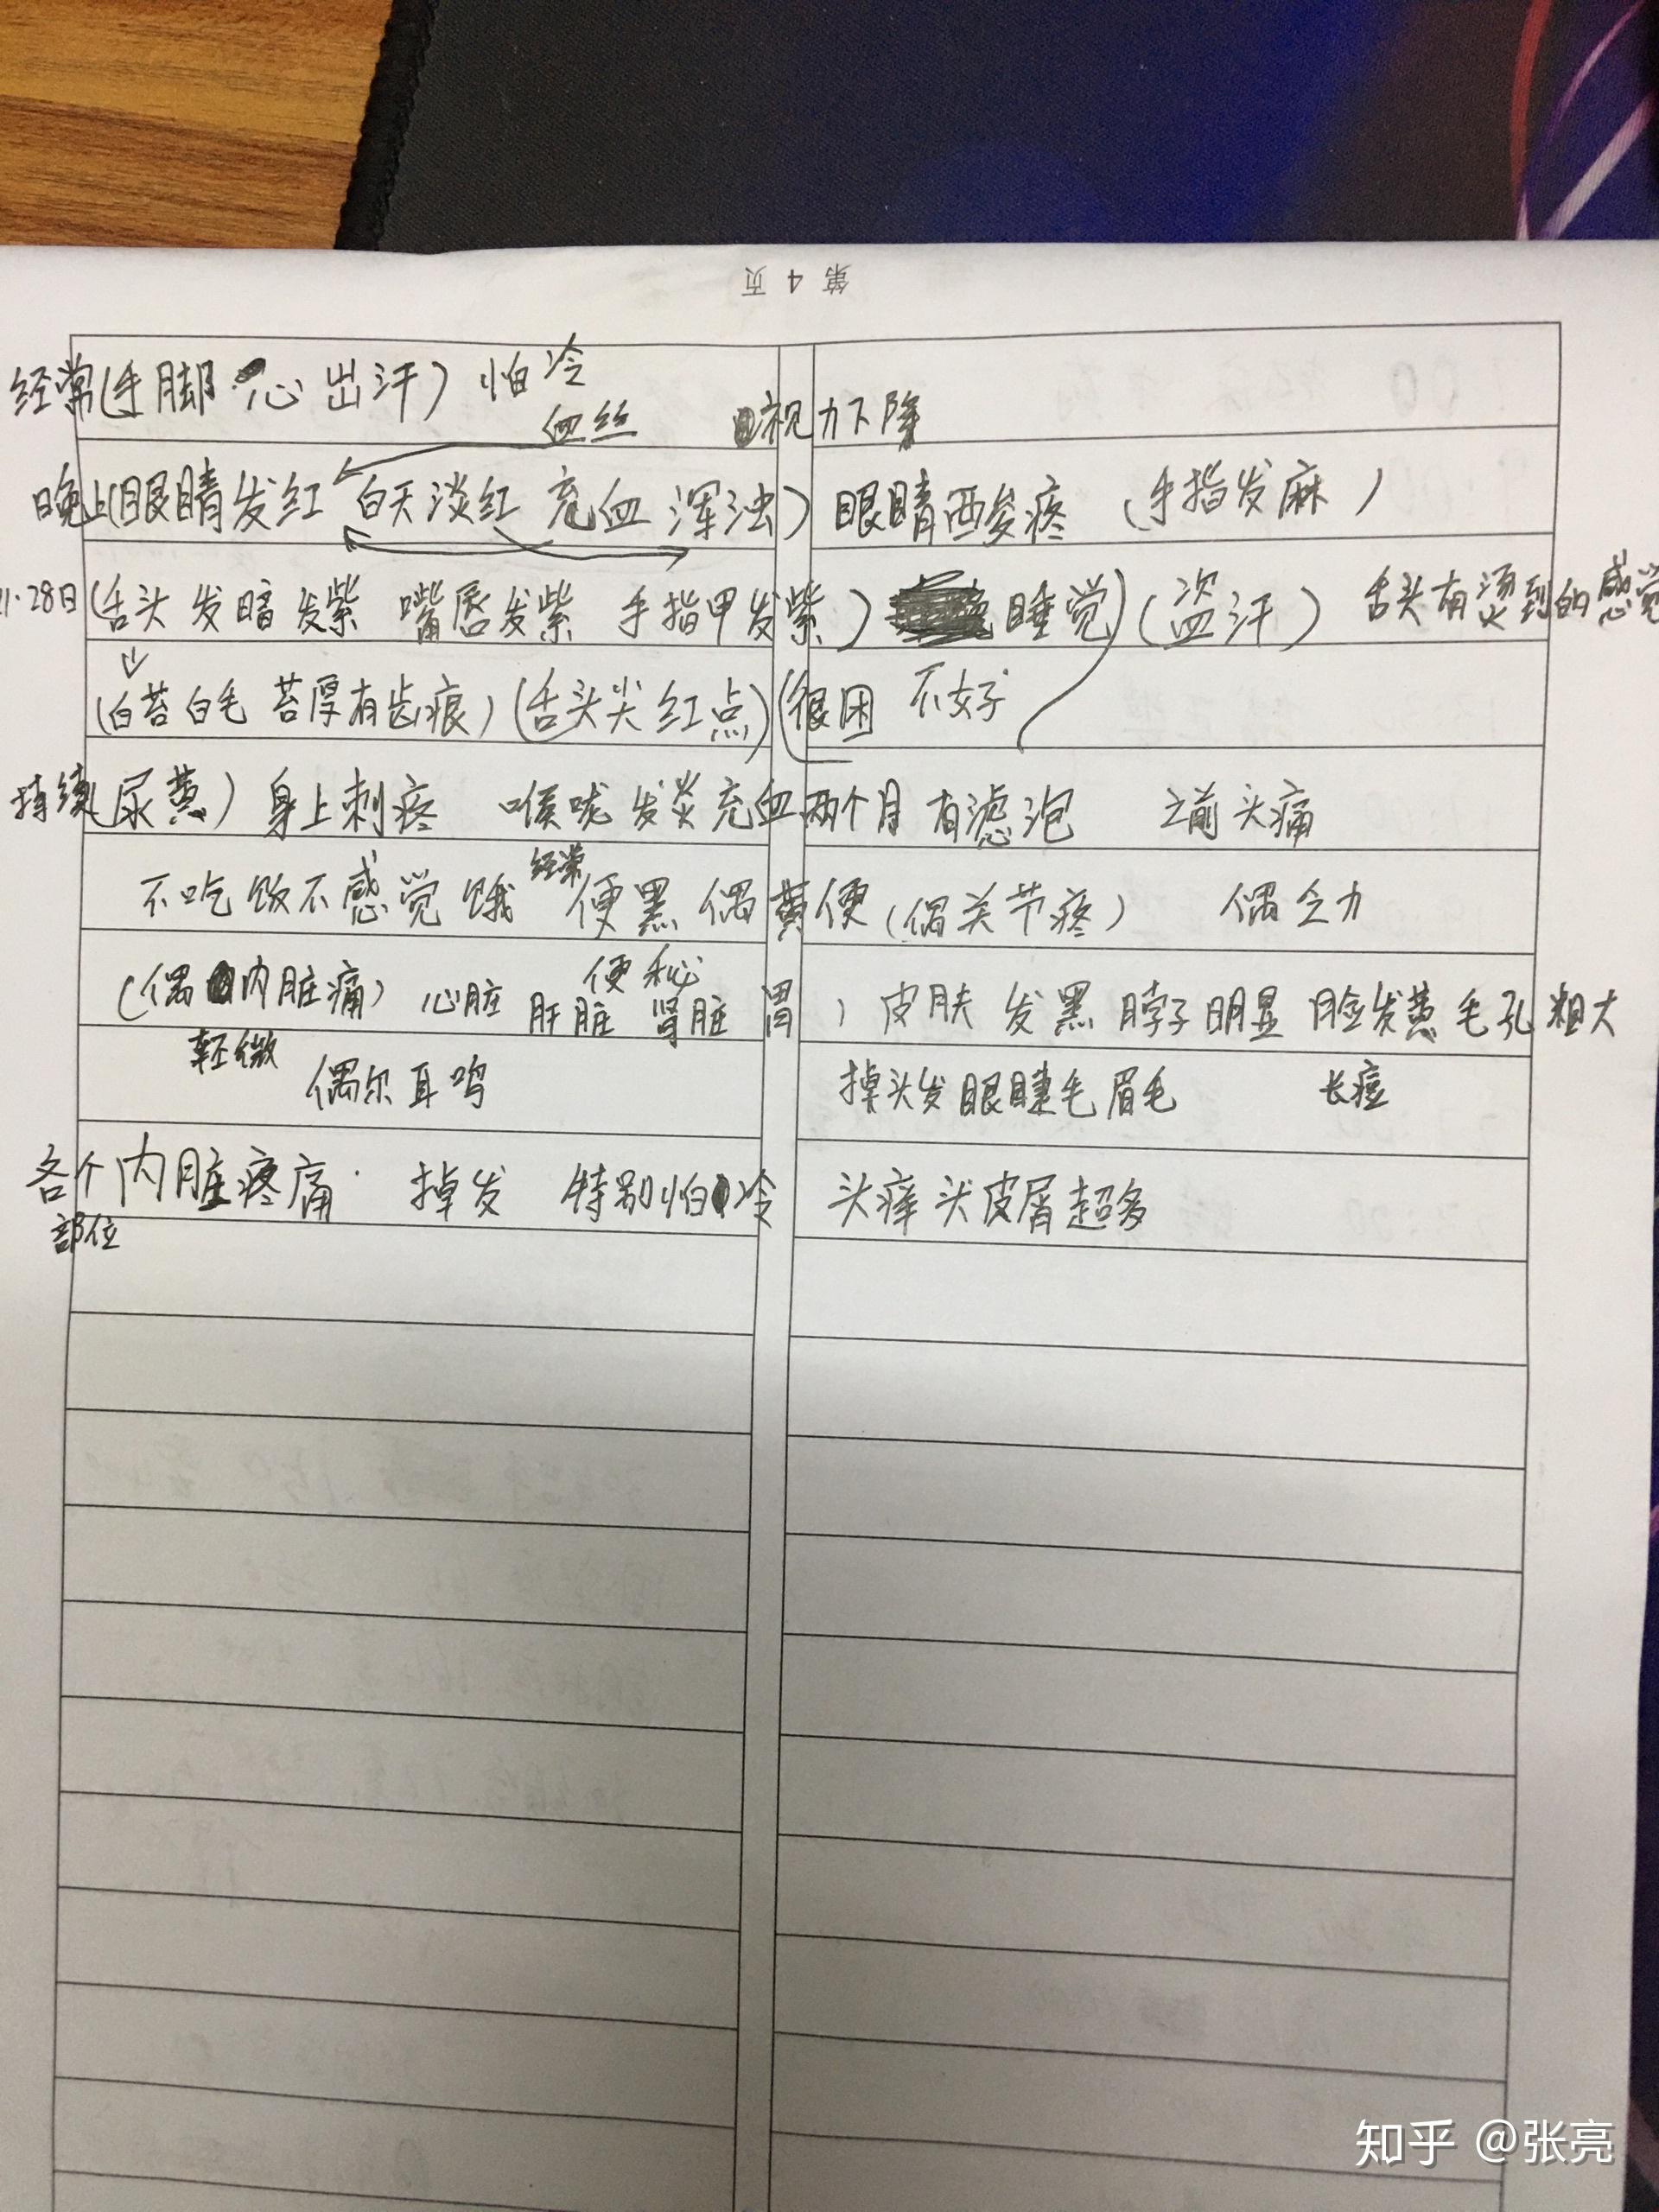 第 4 页
经常(手脚心出汗) 怕冷
血丝 视力下降
晚上(眼睛发红 白天淡红 充血 浑浊) 眼睛酸疼 (手指发麻)
11·28日(舌头发暗发紫 嘴唇发紫 手指甲发紫) 睡觉)(盗汗) 舌头有烫到的感觉
(白苔白毛 苔厚有齿痕)(舌头尖红点)(很困 不好
持续(尿黄) 身上刺疼 喉咙发炎充血两个月有滤泡 之前头痛
经常
不吃饭不感觉饿 便黑 偶黄便 (偶关节疼) 偶乏力
便秘
(偶内脏痛) 心脏 肝脏 肾脏 胃) 皮肤发黑脖子明显 脸发黄毛孔粗大
轻微
偶尔耳鸣 掉头发眼睫毛眉毛 长痘
各个内脏疼痛· 掉发 特别怕冷 头痒头皮屑超多
部位
知乎 @张亮